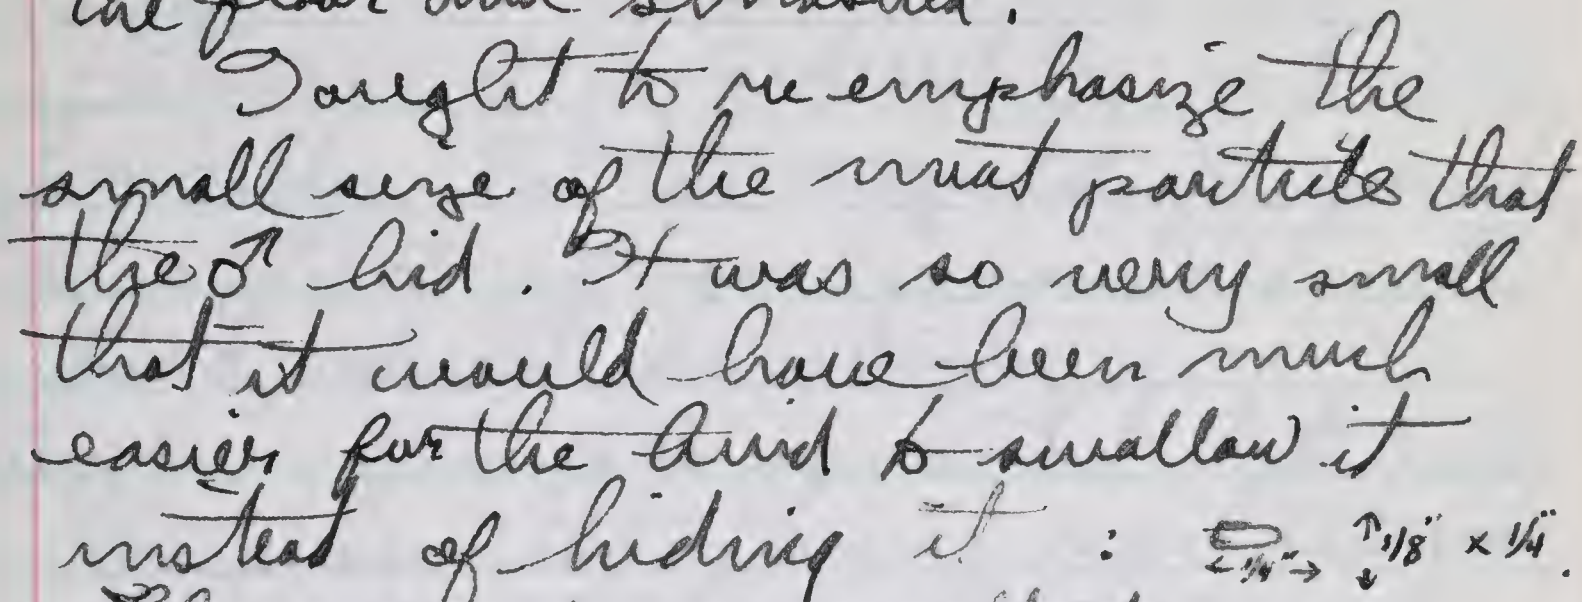 the floor and
I ought to re emphasize the
small size of the meat particle that
the ♂ hid. It was so very small
that it would have been much
easier for the bird to swallow it
instead of hiding it : ←1/4"→ ↑↓ 1/8" x 1/4".